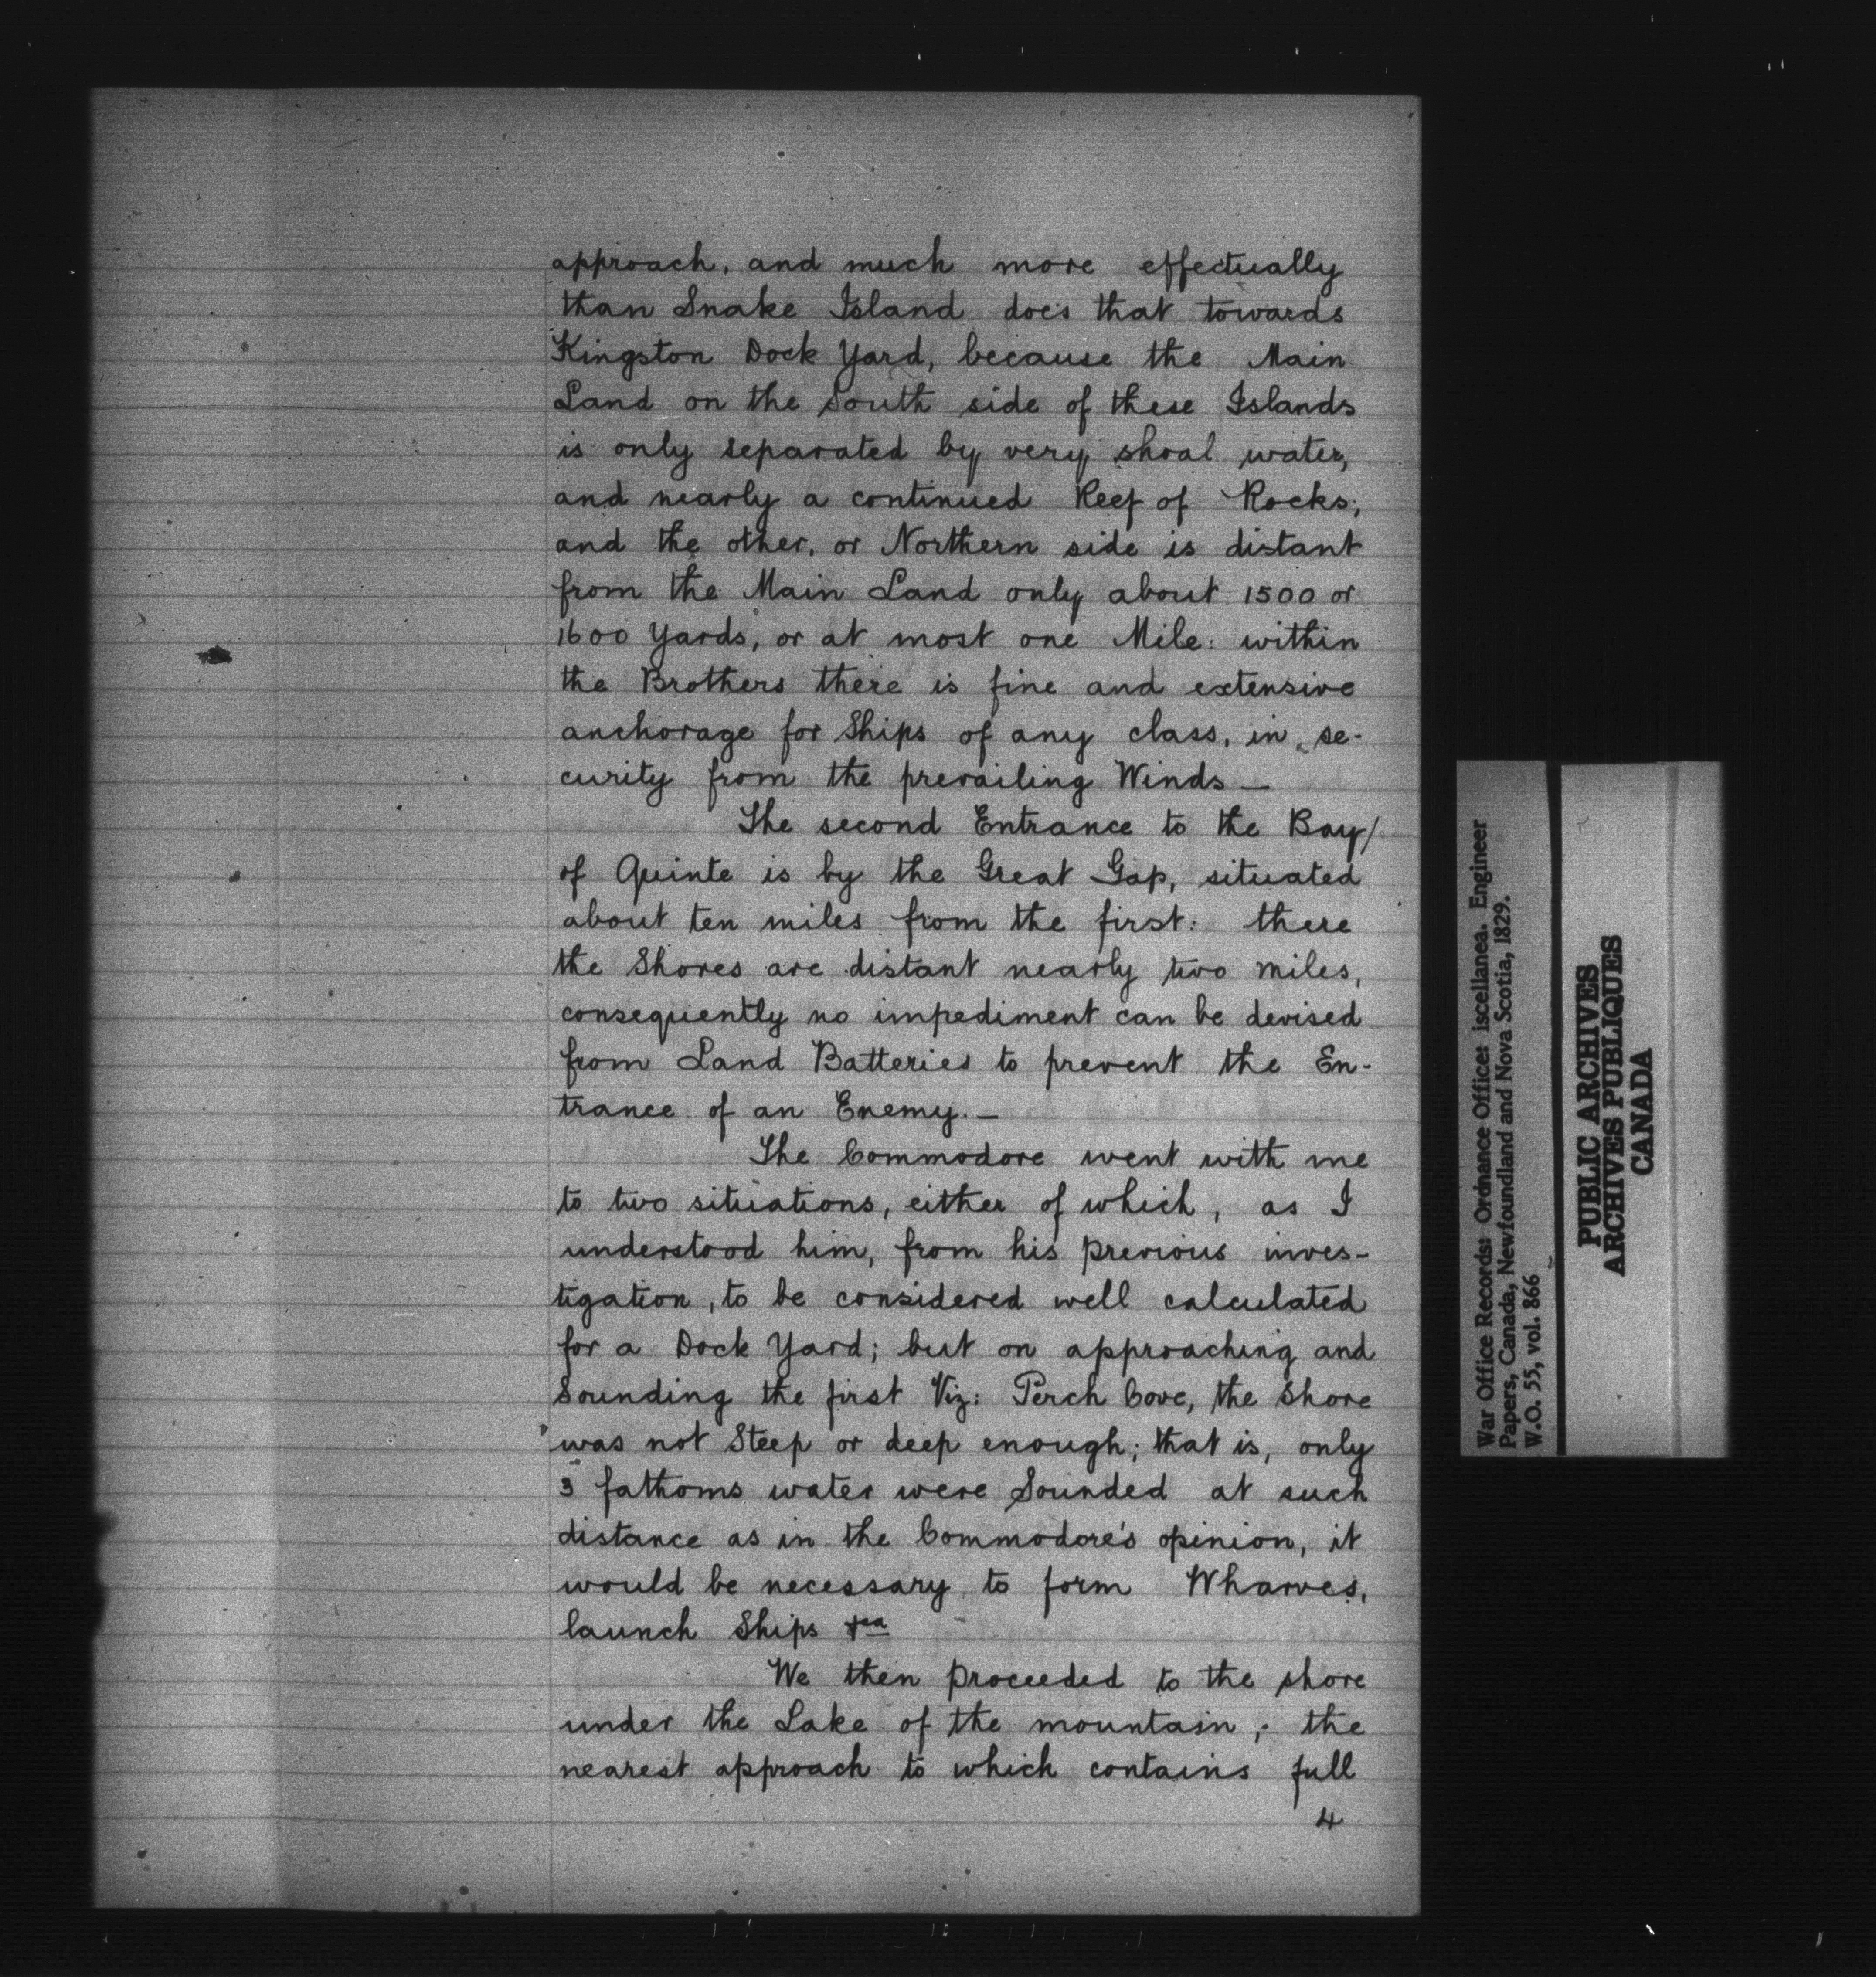 approach, and much more effectually
than Snake Island does that towards
Kingston Dock Yard, because the Main
Land on the South side of these Islands
is only separated by very shoal water,
and nearly a continued Reef of Rocks;
and the other, or Northern side is distant
from the Main Land only about 1500 or
1600 Yards, or at most one Mile: within
the Brothers there is fine and extensive
anchorage for Ships of any class, in se-
curity from the prevailing Winds —
The second Entrance to the Bay/
of Quinte is by the Great Gap, situated
about ten miles from the first: there
the Shores are distant nearly two miles,
consequently no impediment can be devised
from Land Batteries to prevent the En-
trance of an Enemy. —
The Commodore went with me
to two situations, either of which, as I
understood him, from his previous inves-
tigation, to be considered well calculated
for a Dock Yard; but on approaching and
Sounding the first Viz: Perch Cove, the Shore
was not Steep or deep enough; that is, only
3 fathoms water were Sounded at such
distance as in the Commodore's opinion, it
would be necessary to form Wharves,
launch Ships &ca
We then proceeded to the shore
under the Lake of the mountain; the
nearest approach to which contains full
4
War Office Records: Ordnance Office: iscellanea. Engineer
Papers, Canada, Newfoundland and Nova Scotia, 1829.
W.O. 55, vol. 866
PUBLIC ARCHIVES
ARCHIVES PUBLIQUES
CANADA